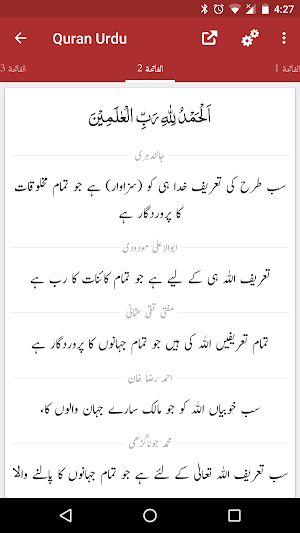 4:27
Quran Urdu
الفاتحة 3
الفاتحة 2
الفاتحة 1
اَلْحَمْدُ لِلّٰهِ رَبِّ الْعٰلَمِيْنَ
جالندہری
سب طرح کی تعریف خدا ہی کو (سزاوار) ہے جو تمام مخلوقات
کا پروردگار ہے
ابوالاعلی مودودی
تعریف اللہ ہی کے لیے ہے جو تمام کائنات کا رب ہے
مفتی تقی عثمانی
تمام تعریفیں اللہ کی ہیں جو تمام جہانوں کا پروردگار ہے
احمد رضا خان
سب خوبیاں اللہ کو جو مالک سارے جہان والوں کا،
محمد جوناگڑھی
سب تعریف اللہ تعالیٰ کے لئے ہے جو تمام جہانوں کا پالنے والا